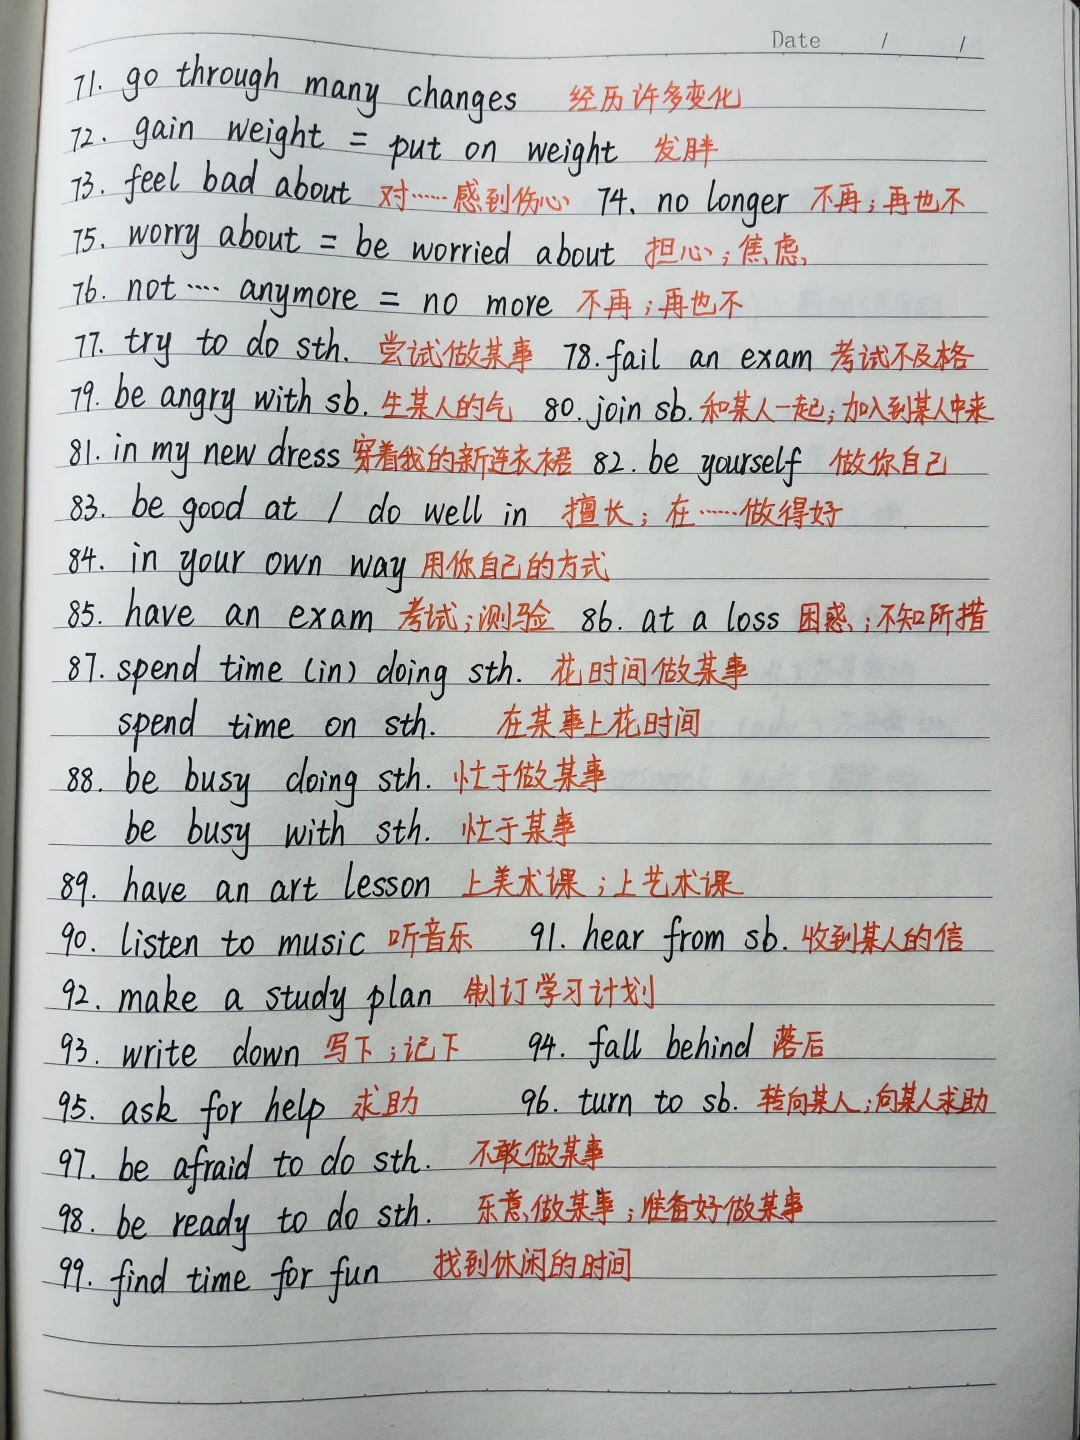 Date / /
71. go through many changes 经历许多变化
72. gain weight = put on weight 发胖
73. feel bad about 对……感到伤心 74. no longer 不再；再也不
75. worry about = be worried about 担心；焦虑
76. not …. anymore = no more 不再；再也不
77. try to do sth. 尝试做某事 78. fail an exam 考试不及格
79. be angry with sb. 生某人的气 80. join sb. 和某人一起；加入到某人中来
81. in my new dress 穿着我的新连衣裙 82. be yourself 做你自己
83. be good at / do well in 擅长；在……做得好
84. in your own way 用你自己的方式
85. have an exam 考试；测验 86. at a loss 困惑；不知所措
87. spend time (in) doing sth. 花时间做某事
spend time on sth. 在某事上花时间
88. be busy doing sth. 忙于做某事
be busy with sth. 忙于某事
89. have an art lesson 上美术课；上艺术课
90. listen to music 听音乐 91. hear from sb. 收到某人的信
92. make a study plan 制订学习计划
93. write down 写下；记下 94. fall behind 落后
95. ask for help 求助 96. turn to sb. 转向某人；向某人求助
97. be afraid to do sth. 不敢做某事
98. be ready to do sth. 乐意做某事；准备好做某事
99. find time for fun 找到休闲的时间